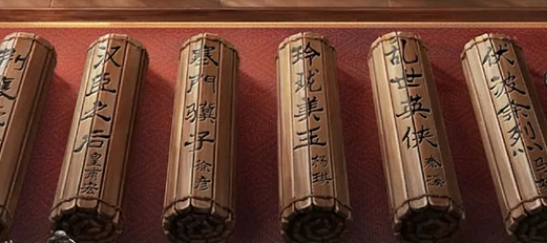 汉臣之后
皇甫宏
寒門骥子
徐彦
玲珑美玉
杨琪
乱世英侠
伏波余烈